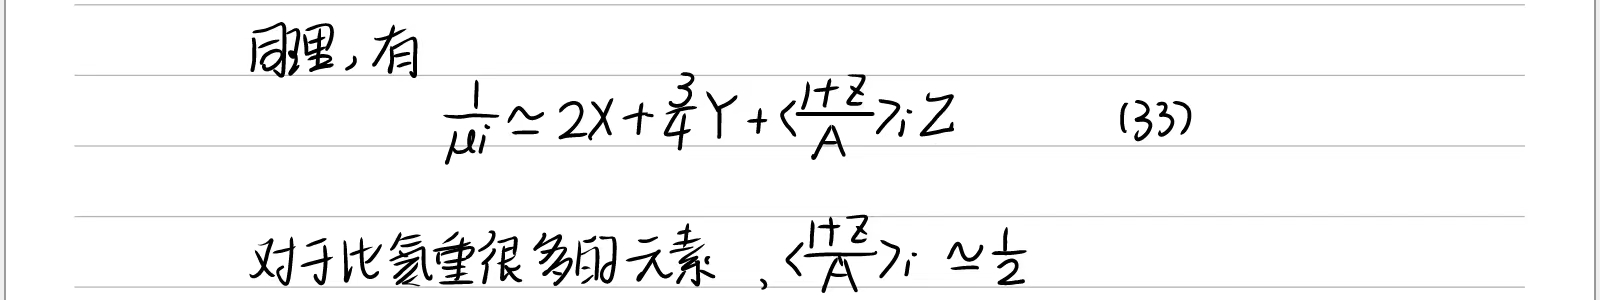 同理,有
1/μi ≃ 2X + 3/4 Y + <(1+z)/A>i Z (33)
对于比氦重很多的元素,<(1+z)/A>i ≃ 1/2